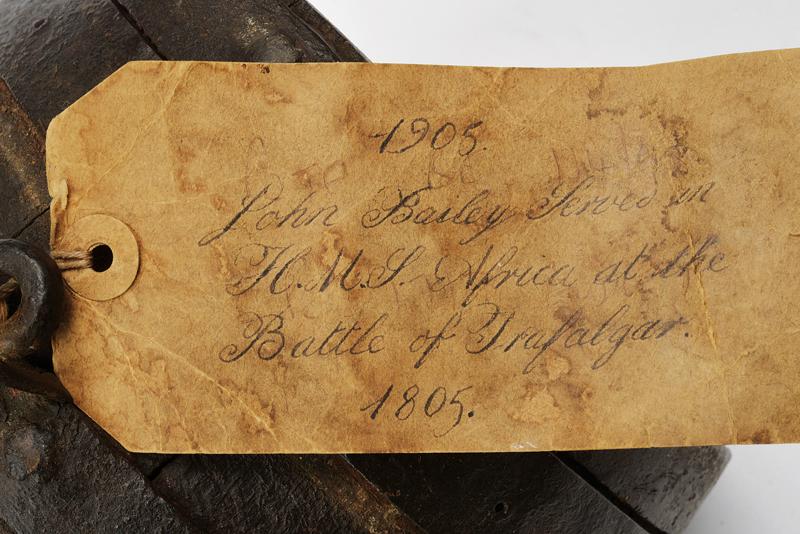 1905.
John Bailey Served in
H.M.S. Africa at the
Battle of Trafalgar.
1805.